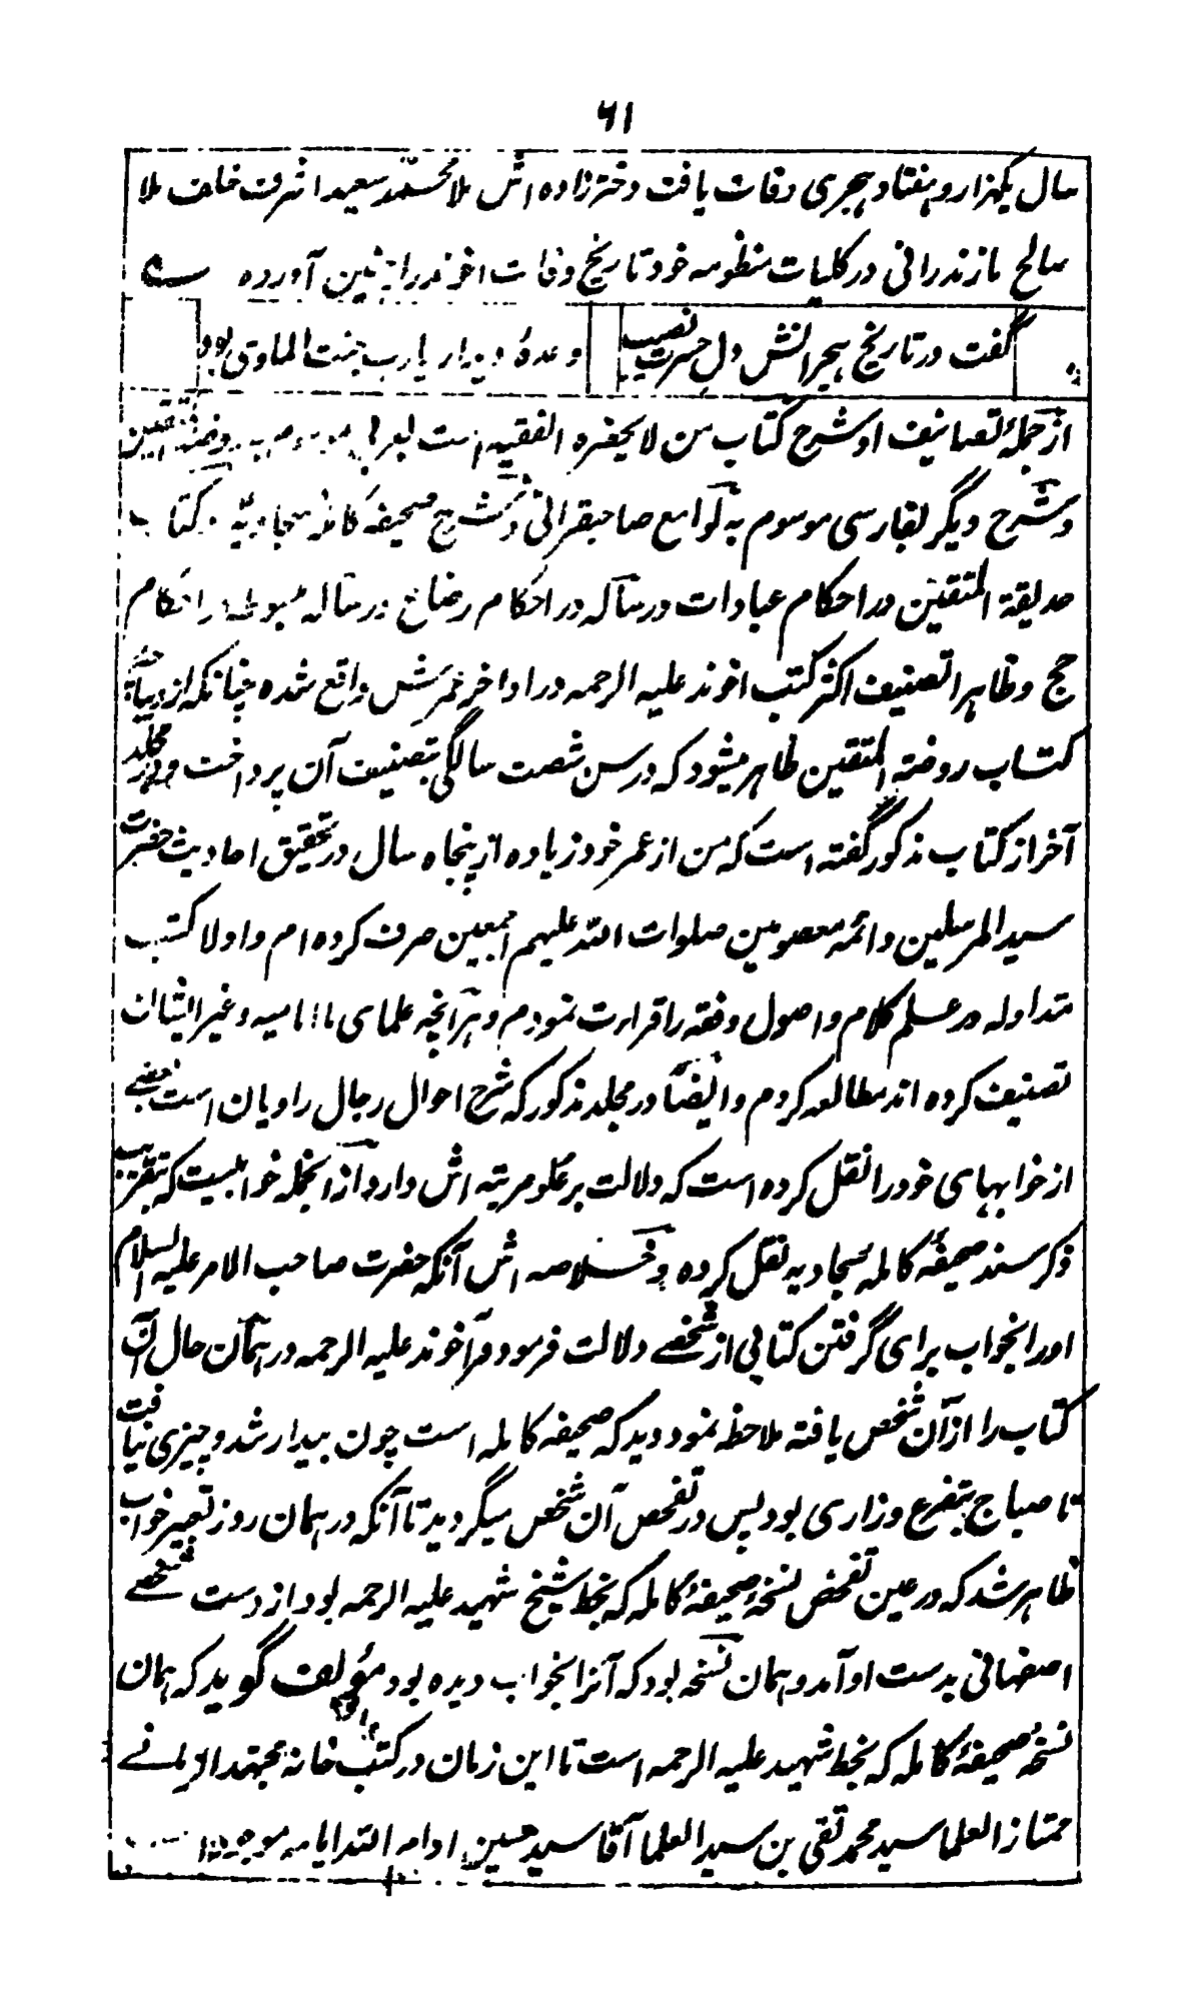 ٦١
سال یکهزار و هفتاد هجری وفات یافت دخترزاده اش ملا محمّد سعید اشرف خلف ملا
صالح مازندرانی در کلیات منظومه خود تاریخ وفات اخوند را چنین آورده
گفت در تاریخ هجرانش دل حسرت نصیب وعدهٔ دیدار یارب جنت الماوی بود
از جملهٔ تصانیف او شرح کتاب من لایحضره الفقیه است بعربی موسوم به روضة المتقین
و شرح دیگر بفارسی موسوم به لوامع صاحبقرانی و شرح صحیفه کامله سجادیّه و کتاب
حدیقة المتقین در احکام عبادات و رساله در احکام رضاع و رساله مبسوطه در احکام
حج و ظاهرا تصنیف اکثر کتب اخوند علیه الرحمه در اواخر عمرش واقع شده چنانکه از دیباچهٔ
کتاب روضة المتقین ظاهر میشود که در سن شصت سالگی بتصنیف آن پرداخت و در مجلد
آخر از کتاب مذکور گفته است که من از عمر خود زیاده از پنجاه سال در تحقیق احادیث حضرت
سید المرسلین و ائمه معصومین صلوات الله علیهم اجمعین صرف کرده ام و اولا کتب
متداوله در علم کلام و اصول و فقه را قراءت نمودم و هرآنچه علمای ما امامیه و غیر ایشان
تصنیف کرده اند مطالعه کردم و ایضاً در مجلد مذکور که شرح احوال رجال راویان است بعضے
از خوابهای خود را نقل کرده است که دلالت بر علو مرتبه اش دارد از انجمله خوابیست که بتقریب
ذکر سند صحیفهٔ کامله سجادیه نقل کرده و خلاصه اش آنکه حضرت صاحب الامر علیه السلام
او را بخواب برای گرفتن کتابی از شخصے دلالت فرمود و آخوند علیه الرحمه در همان حال آن
کتاب را از آن شخص یافته ملاحظه نمود دید که صحیفه کامله است چون بیدار شد و چیزی نیافت
تا صباح بتضرع و زاری بود پس در تفحص آن شخص میگردید تا آنکه در همان روز تعبیر خواب
ظاهر شد که در عین تفحص نسخهٔ صحیفهٔ کامله که بخط شیخ شهید علیه الرحمه بود از دست شخصے
اصفهانی بدست او آمد و همان نسخه بود که آنرا بخواب دیده بود مؤلف گوید که همان
نسخهٔ صحیفهٔ کامله که بخط شهید علیه الرحمه است تا این زمان در کتب خانه مجتهد الزمانے
ممتاز العلما سید محمد تقی بن سید العلما آقا سید حسین ادام الله ایامه موجود است